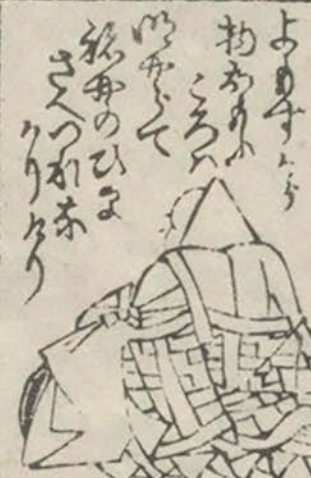 よもすから
物おもふ
ころハ
明やらて
祢やのひま
さへつれな
かりけり